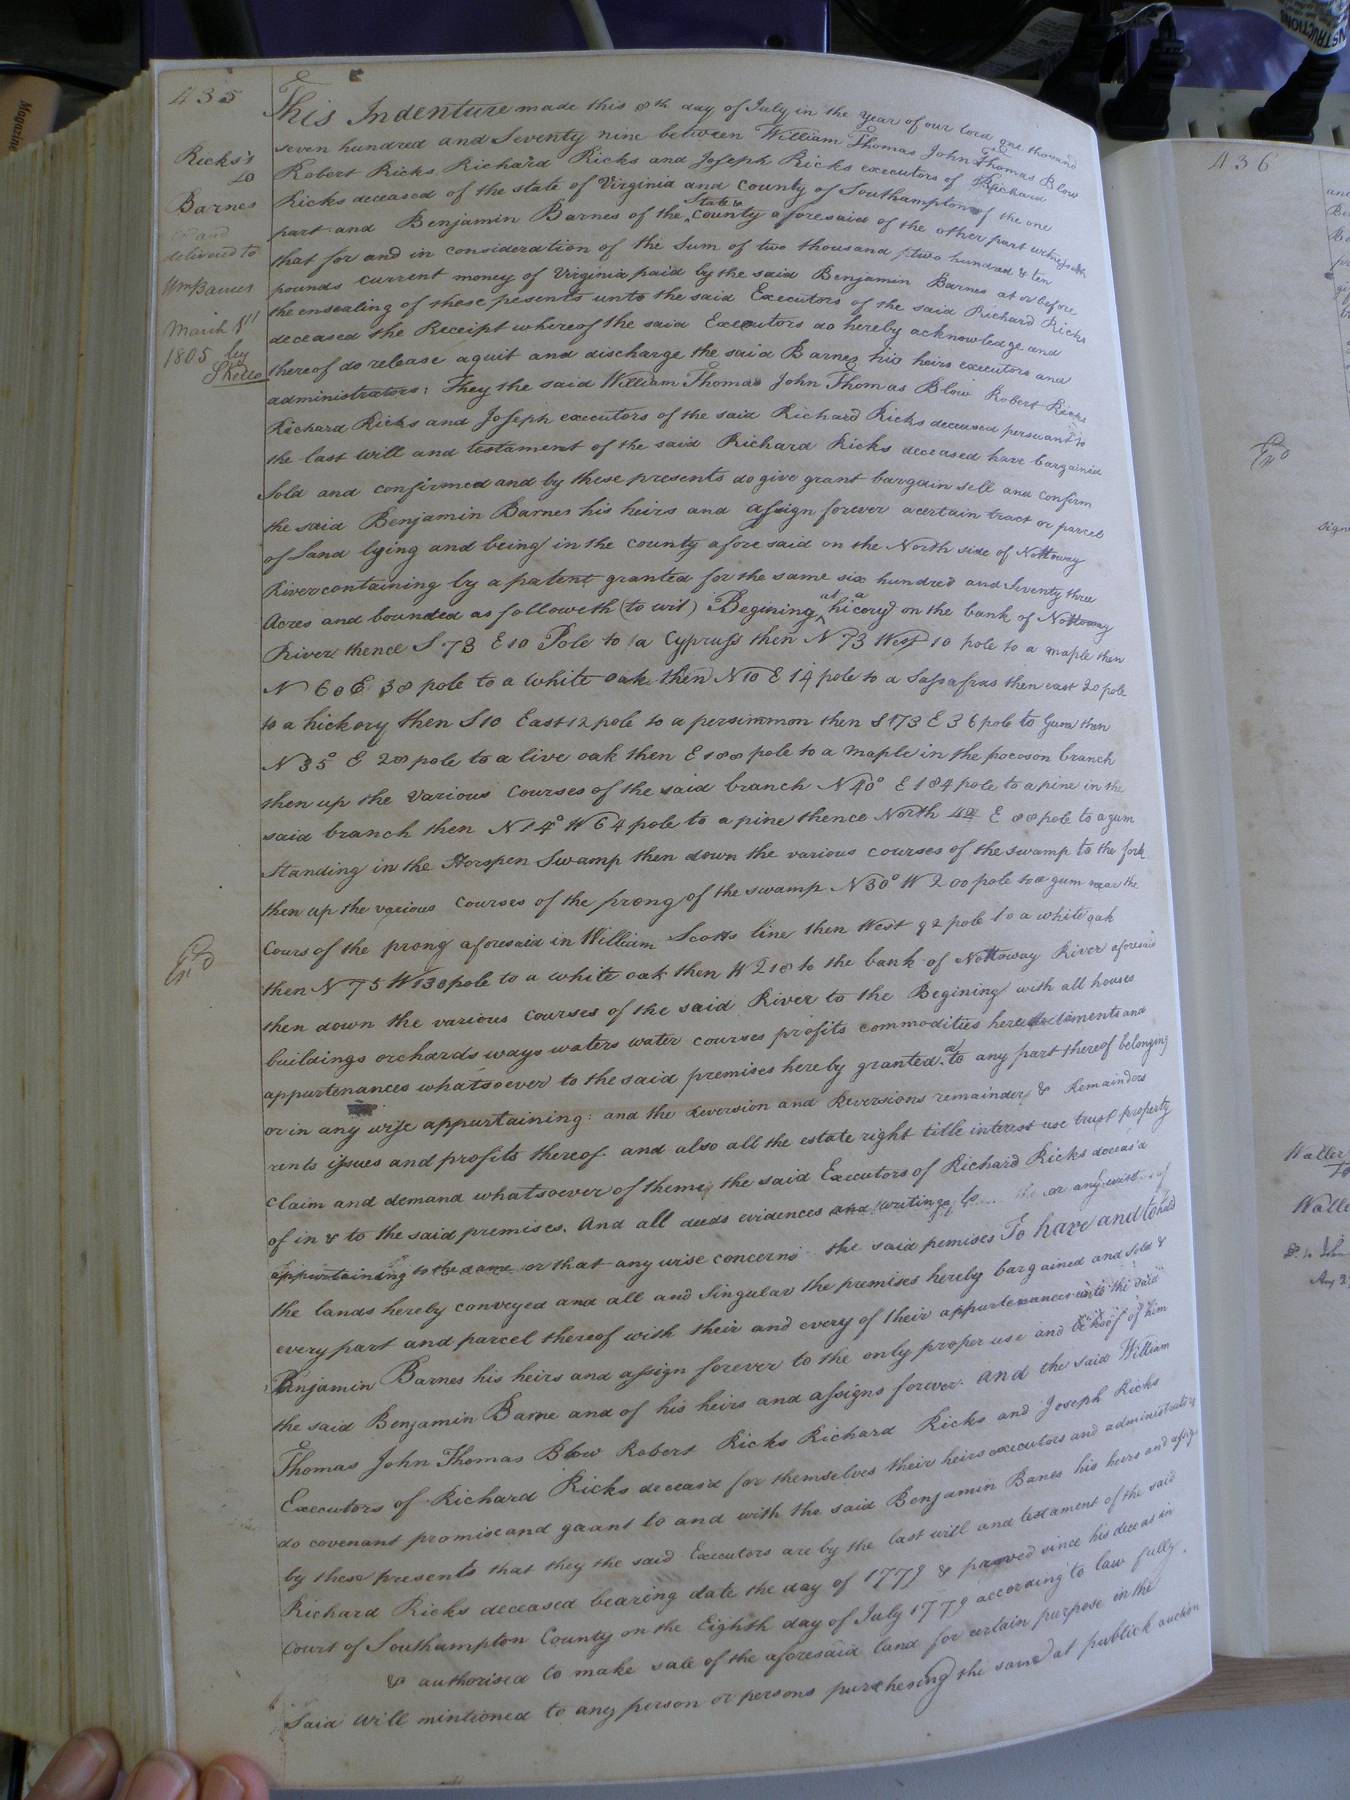 435
Ricks's
to
Barnes
delivered to
Wm Barnes
March 8th
1805 by
SKello
Exd
This Indenture made this 8th day of July in the year of our lord one thousand
seven hundred and Seventy nine between William Thomas John Thomas Blow
Robert Ricks, Richard Ricks and Joseph Ricks executors of Richard
Ricks deceased of the state of Virginia and county of Southampton of the one
part and Benjamin Barnes of the State & county aforesaid of the other part witnesseth
that for and in consideration of the Sum of two thousand two hundred & ten
pounds current money of Virginia paid by the said Benjamin Barnes at or before
the ensealing of these presents unto the said Executors of the said Richard Ricks
deceased the Receipt whereof the said Executors do hereby acknowledge and
thereof do release aquit and discharge the said Barnes his heirs executors and
administrators; They the said William Thomas John Thomas Blow Robert Ricks
Richard Ricks and Joseph executors of the said Richard Ricks deceased persuant to
the last Will and testament of the said Richard Ricks deceased have bargained
Sold and confirmed and by these presents do give grant bargain sell and confirm
the said Benjamin Barnes his heirs and assign forever a certain tract or parcel
of Land lying and being in the county aforesaid on the North side of Nottoway
River containing by a patent granted for the same six hundred and Seventy three
Acres and bounded as followeth (to wit) Begining at a hicory on the bank of Nottoway
River thence S 73 E 10 Pole to a Cypruss then N 73 West 10 pole to a maple then
N 60 E 38 pole to a White oak then N 10 E 14 pole to a Sassafras then east 20 pole
to a hickory then S 10 East 12 pole to a persimmon then S 173 E 36 pole to Gum then
N 35° E 28 pole to a live oak then E 188 pole to a maple in the pocoson branch
then up the various Courses of the said branch N 40° E 184 pole to a pine in the
said branch then N 14° W 64 pole to a pine thence North E 88 pole to a gum
standing in the Horspen Swamp then down the various courses of the swamp to the fork
then up the various Courses of the prong of the swamp N 30° W 200 pole to a gum near the
Cours of the prong aforesaid in William Scotts line then West 92 pole to a white oak
then N 75 W 130 pole to a white oak then W 218 to the bank of Nottoway River aforesaid
then down the various courses of the said River to the Begining with all houses
buildings orchards ways waters water courses profits commodities hereditaments and
appurtenances whatsoever to the said premises hereby granted to any part thereof belonging
or in any wise appurtaining: and the Reversion and Reversions remainder & Remainders
rents issues and profits thereof and also all the estate right title interest use trust property
claim and demand whatsoever of them the said Executors of Richard Ricks deceas'd
of in & to the said premises, And all deeds evidences and writings or any wise
appurtaining to the same or that any wise concerns the said pemises To have and to hold
the lands hereby conveyed and all and Singular the premises hereby bargained and sold &
every part and parcel thereof with their and every of their appurtenances unto the said
Benjamin Barnes his heirs and assign forever to the only proper use and behoof of him
the said Benjamin Barne and of his heirs and assigns forever. and the said William
Thomas John Thomas Blow Robert Ricks Richard Ricks and Joseph Ricks
Executors of Richard Ricks deceas'd for themselves their heirs executors and administrators
do covenant promise and gaant to and with the said Benjamin Banes his heirs and assigns
by these presents that they the said Executors are by the last will and testament of the said
Richard Ricks deceased bearing date the day of 1779 & proved since his deceas in
Court of Southampton County on the Eighth day of July 1779 according to law fully
& authorised to make sale of the aforesaid land for certain purpose in the
Said Will mintioned to any person or persons purchesing the same at publick auction
436
Exd
Walle
Magazine